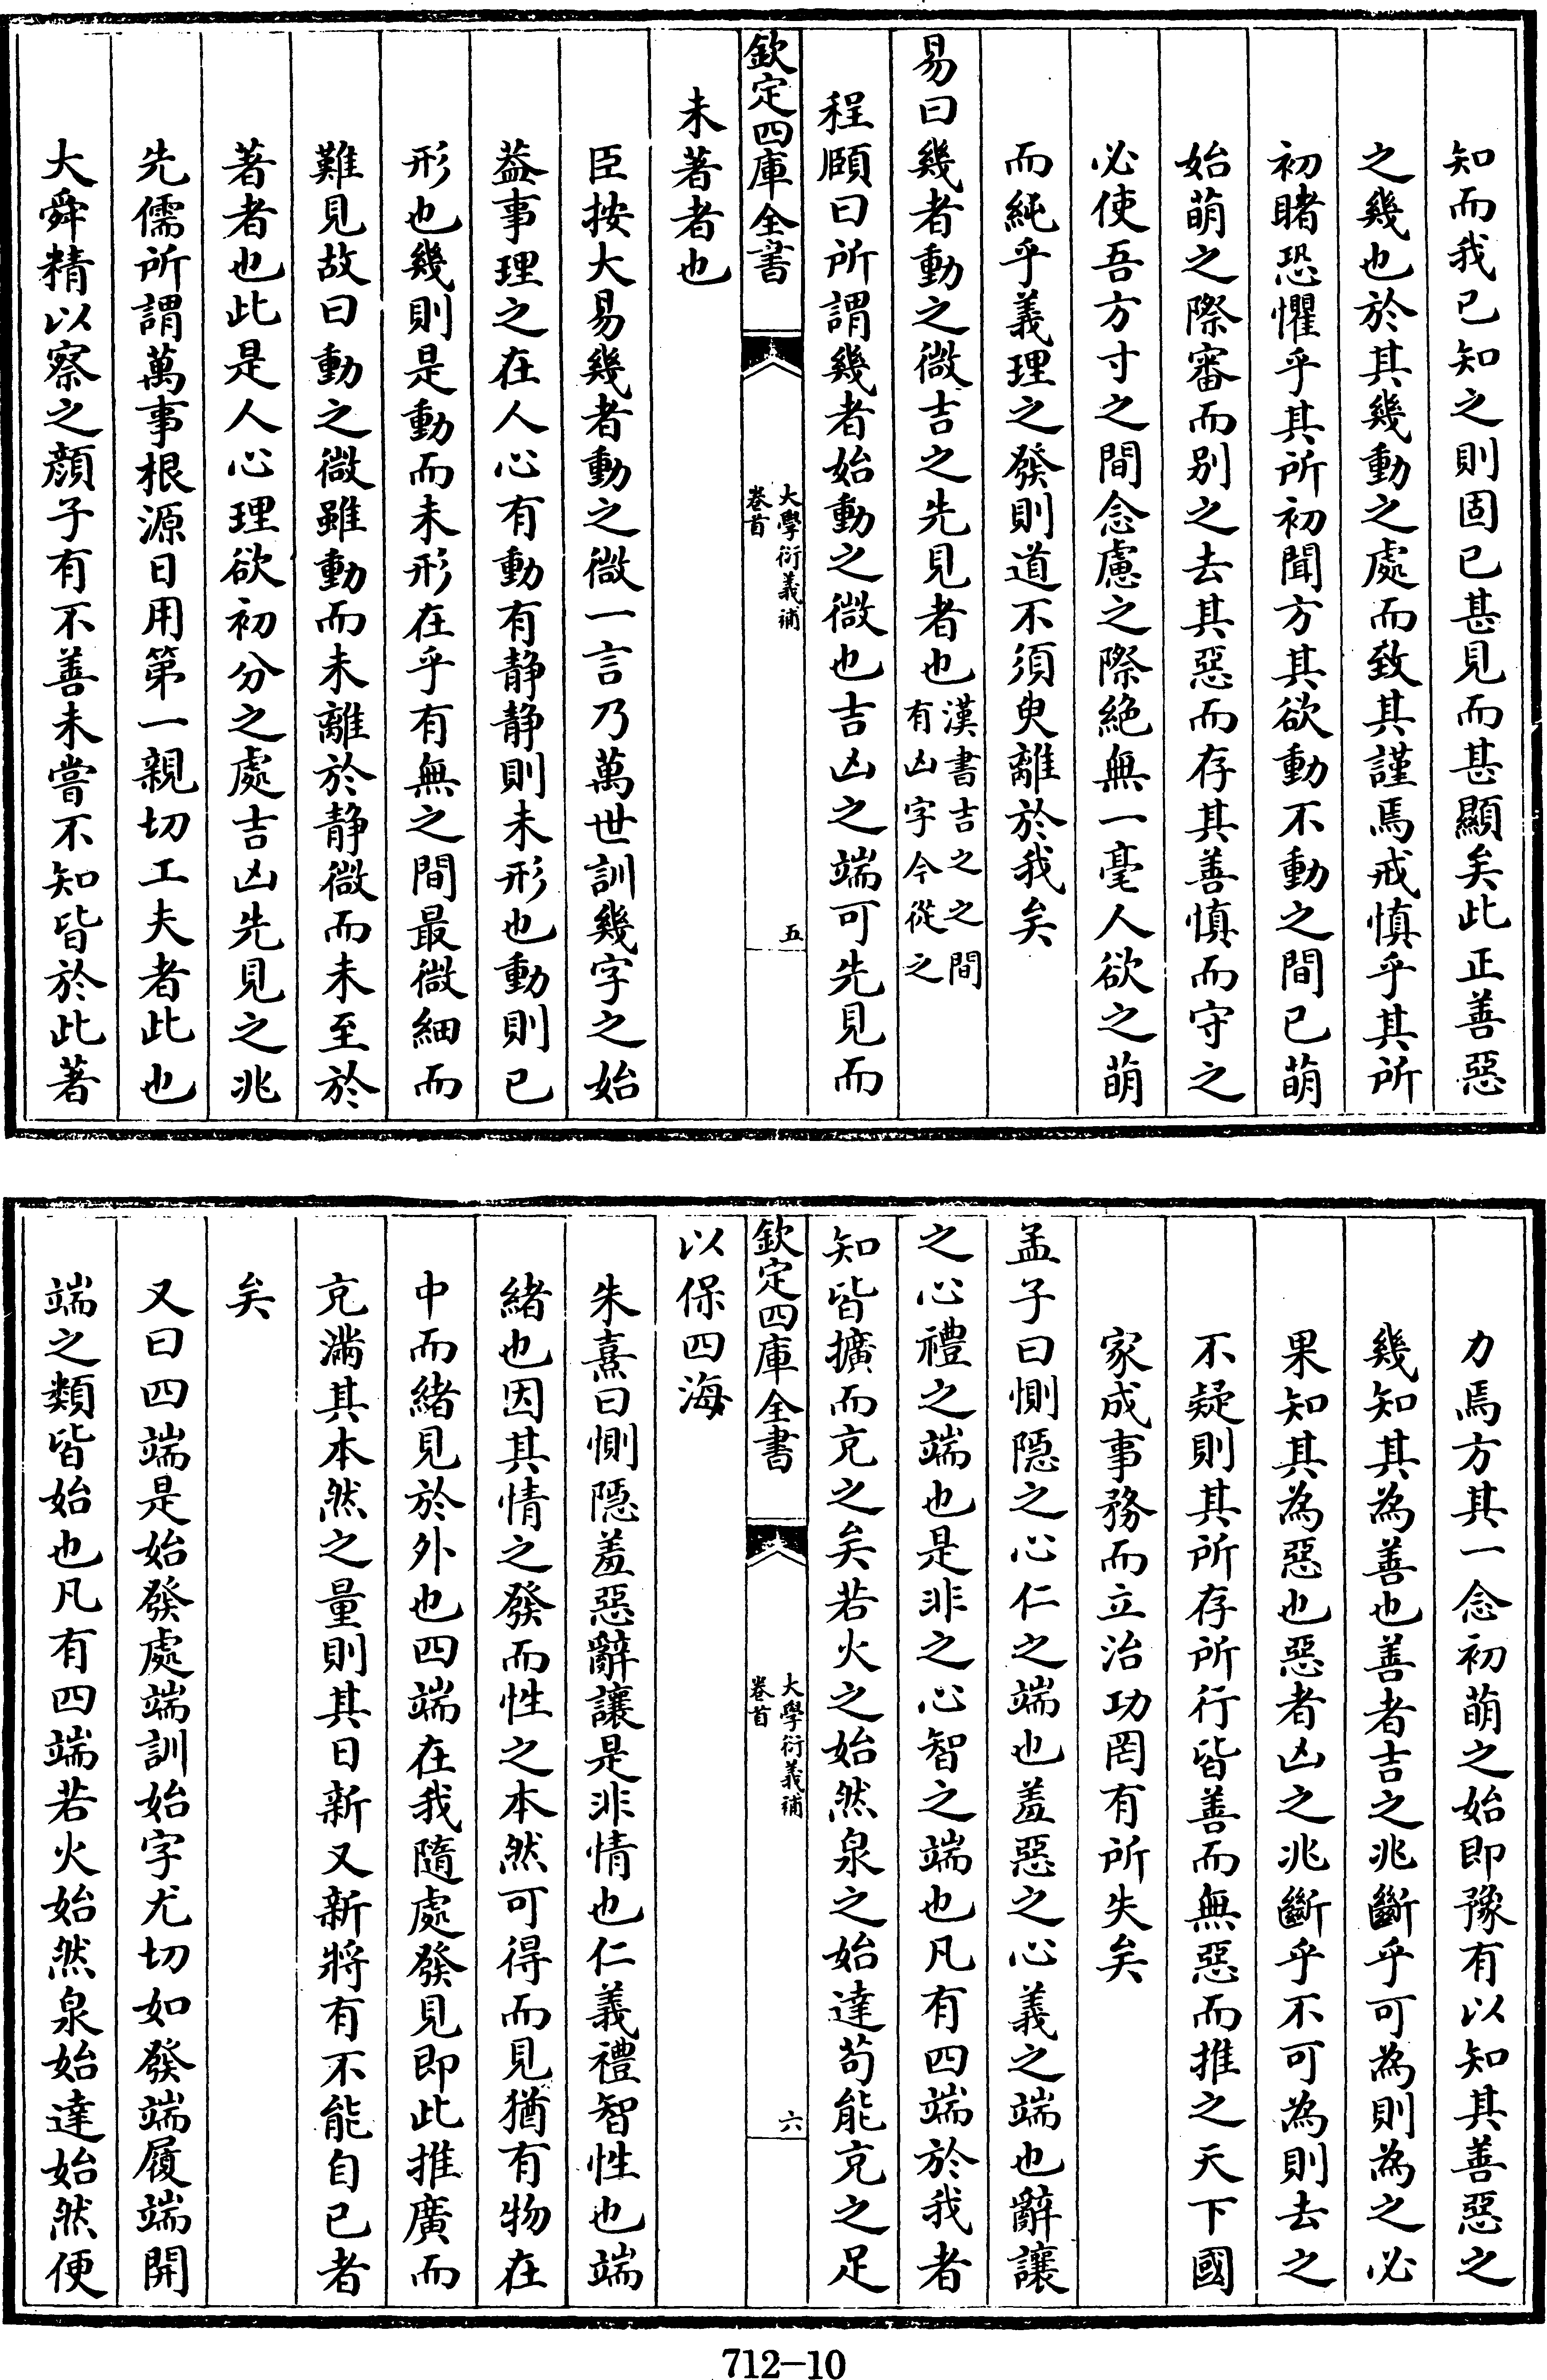 知而我已知之則固已甚見而甚顯矣此正善惡
之幾也於其幾動之處而致其謹焉戒慎乎其所
初睹恐懼乎其所初聞方其欲動不動之間已萌
始萌之際審而别之去其惡而存其善慎而守之
必使吾方寸之間念慮之際絶無一毫人欲之萌
而純乎義理之發則道不須臾離於我矣
易曰幾者動之微吉之先見者也漢書吉之之間
有凶字今從之
程頤曰所謂幾者始動之微也吉凶之端可先見而
欽定四庫全書
大學衍義補
卷首
五
未著者也
臣按大易幾者動之微一言乃萬世訓幾字之始
葢事理之在人心有動有静静則未形也動則已
形也幾則是動而未形在乎有無之間最微細而
難見故曰動之微雖動而未離於静微而未至於
著者也此是人心理欲初分之處吉凶先見之兆
先儒所謂萬事根源日用第一親切工夫者此也
大舜精以察之顔子有不善未嘗不知皆於此著
力焉方其一念初萌之始即豫有以知其善惡之
幾知其為善也善者吉之兆斷乎可為則為之必
果知其為惡也惡者凶之兆斷乎不可為則去之
不疑則其所存所行皆善而無惡而推之天下國
家成事務而立治功罔有所失矣
孟子曰惻隠之心仁之端也羞惡之心義之端也辭讓
之心禮之端也是非之心智之端也凡有四端於我者
知皆擴而充之矣若火之始然泉之始達茍能充之足
欽定四庫全書
大學衍義補
卷首
六
以保四海
朱熹曰惻隠羞惡辭讓是非情也仁義禮智性也端
緒也因其情之發而性之本然可得而見猶有物在
中而緒見於外也四端在我隨處發見即此推廣而
充滿其本然之量則其日新又新將有不能自已者
矣
又曰四端是始發處端訓始字尤切如發端履端開
端之類皆始也凡有四端若火始然泉始達始然便
712-10